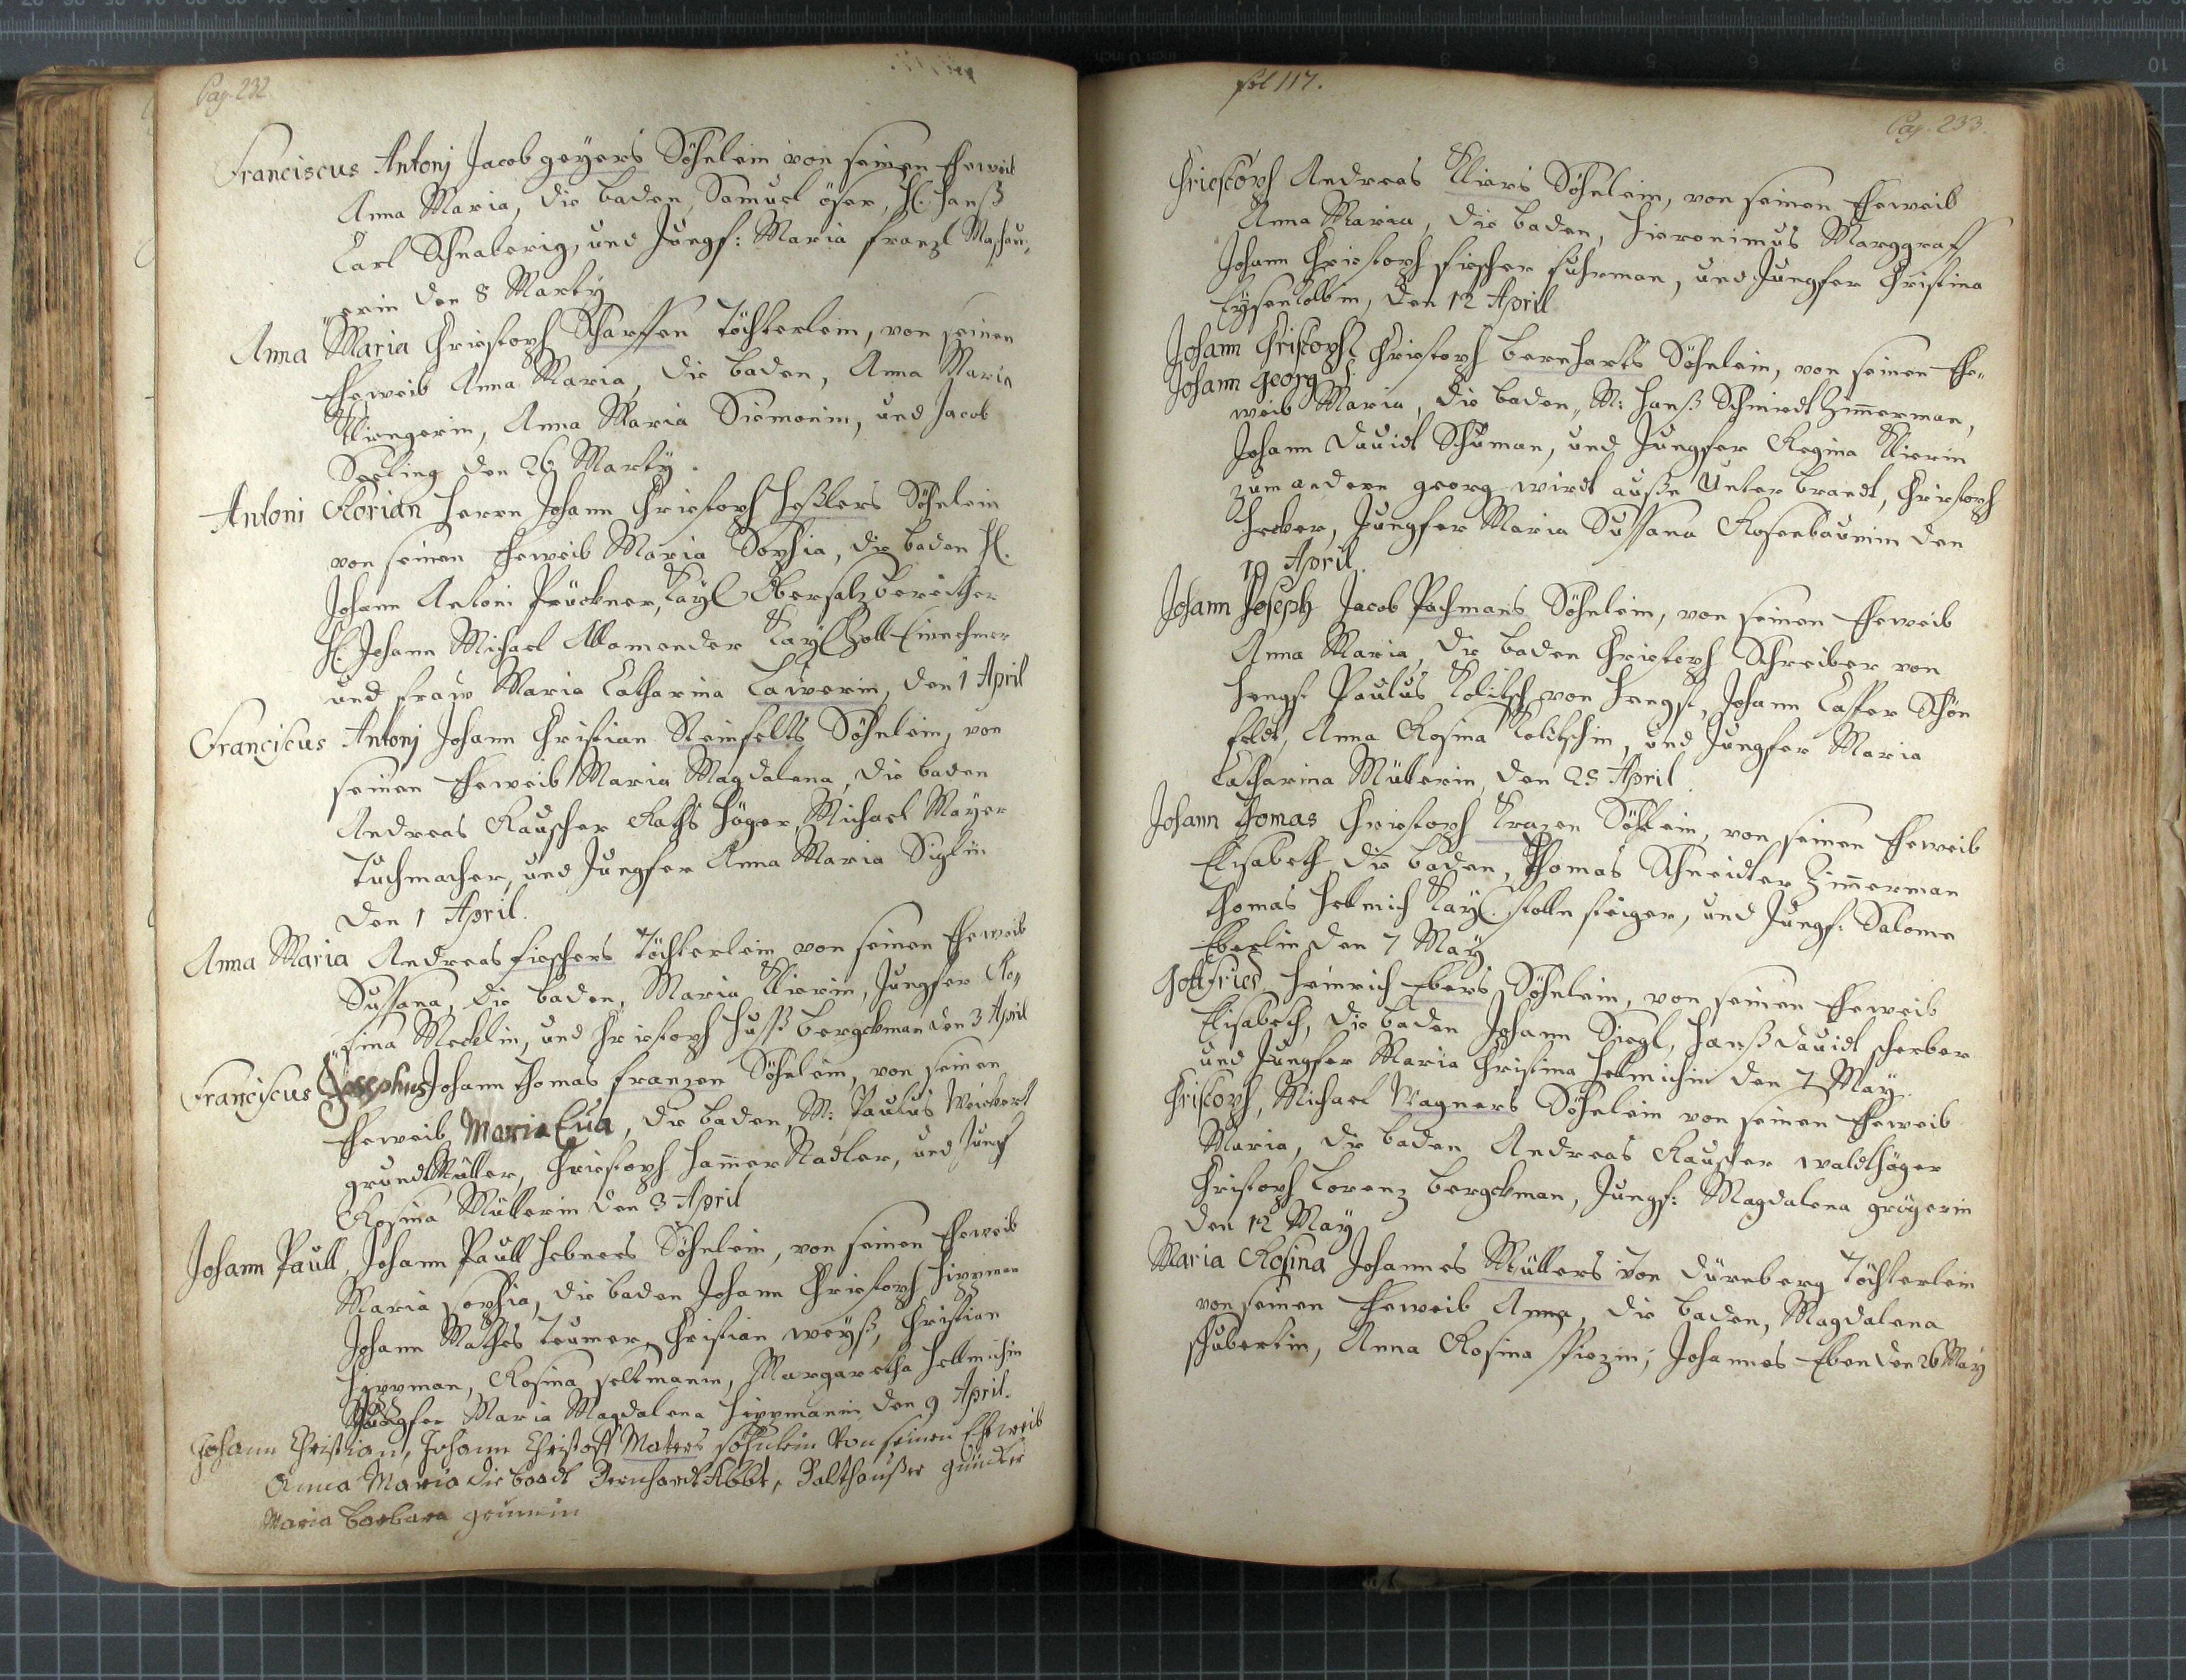 Pag. 232
Franciscus Antonj Jacob geÿers Söhnlein von seinen Eheweib
Anna Maria, die baden, Samuel öser, H. Hanß
Carl Schnaberig, und Jungf: Maria Franzl
erin den 8 Marty
Anna Maria Christoph Scharffen töchterlein, von seinen
Eheweib Anna Maria, die baden, Anna Maria
Klingerin, Anna Maria Simonin, und Jacob
Seeling den 26 Marty.
Antoni Florian Herrn Johann Christoph Heßlers Söhnlein
von seinen Eheweib Maria Sophia, die baden H.
Johann Antoni Prückner, Kayl Obersalzbereither
H. Johann Michael Allamender Kayl Zoll-Einehmer
und fraw Maria Catharina Lawerin, den 1 April
Franciscus Antonj Johann Christian Steinfelts Söhnlein, von
seinen Eheweib Maria Magdalena, die baden
Andreas Rauscher Raths Häger, Michael Mayer
Tuchmacher, und Jungfer Anna Maria Siglin
den 1 April.
Anna Maria Andreas fischers töchterlein, von seinen Eheweib
Sussana, die baden, Maria Klierin, Jungfer Ro„
„sina Mecklin, und Christoph Huß bergckman den 3 April
Franciscus Josephus Johann thomas franzen Söhnlein, von seinen
Eheweib Maria Eva, die baden, M: Paulus Weickert
grundtMüller, Christoph Hammer Nadler, und Jungf
Rosina Müllerin den 3 April
Johann Paull, Johann Paull Hebners Söhnlein, von seinen Eheweib
Maria sophia, die baden Johann Christoph Hippman
Johann Mathes teumer, Christian weÿß, Christian
Hippman, Rosina seltmanin, Margaretha Hellmichin
Jungfer Maria Magdalena Hippmanin den 9 April.
Johann Christian, Johann Christoff Maters söhnlein Von seinen Eheweib
Anna Maria die baadt Bernhardt Abbt, Balthaußer günther
Maria barbara
fol 117.
Pag. 233.
Christoph Andreas Kliers Söhnlein, von seinen Eheweib
Anna Maria, die baden, Hieronimus Marggraff
Johann Christoph fischer fuhrman, und Jungfer Christina
Eysenkolbin, den 12 April
Johann Christoph Christoph bernharts Söhnlein, von seinen Ehe„
Johann Georg
weib Maria, die baden, M: Hanß Schmiedt Zimmerman,
Johann Dauidt Schuman, und Jungfer Regina Klierin
zum andern georg wirdt außn Unter brandt, Christoph
Hecker, Jungfer Maria Sussana Rosenbaumin den
19 April.
Johann Joseph Jacob Pachmans Söhnlein, von seinen Eheweib
Anna Maria, die baden Christoph Schreiber von
Hengst Paulus Kolitsch von Hengst, Johann Casper Schön
feldt, Anna Rosina Kolitschin, und Jungfer Maria
Catharina Müllerin, den 25 April
Johann thomas Christoph Krazen Söhlein, von seinen Eheweib
Elisabeth die baden, Thomas Schneidter Zimmerman
thomas Hellmich Kayl. stolln steiger, und Jungf: Salome
Eberlin den 7 May
Gottfried Heinrich Ebers Söhnlein, von seinen Eheweib
Elisabeth, die baden Johann Siegl, Hanß Dauidt scherber
und Jungfer Maria Christina Hellmichin den 7 May
Christoph, Michael Wagners Söhnlein von seinen Eheweib
Maria, die baden Andreas Rauscher waldthäger
Christoph Lorenz bergckman, Jungf: Magdalena grögerin
den 12 May
Maria Rosina Johannes Müllers von dürnberg töchterlein
von seinen Eheweib Anna, die baden, Magdalena
schubertin, Anna Rosina Pfiezin, Johannes Eben den 26 May